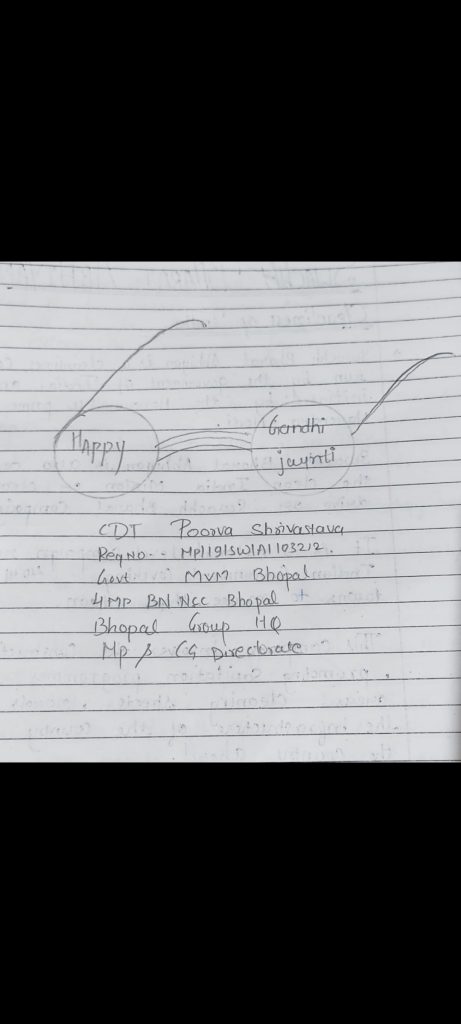 Happy
Gandhi
jaynti
CDT Poorva Shrivastava
Reg no.- MP/19/SW/A/103212.
Govt MVM Bhopal
4 MP BN NCC Bhopal
Bhopal Group HQ
Mp & CG Directorate